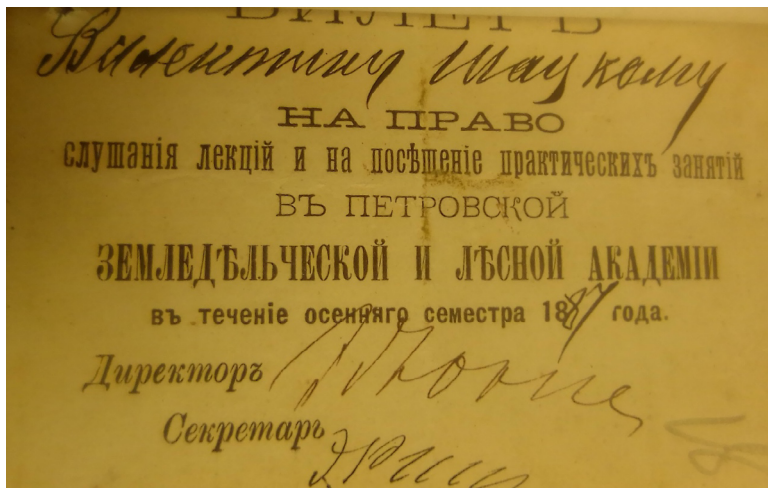 БИЛЕТЪ
Валентину Шацкому
НА ПРАВО
слушанія лекцій и на посѣщеніе практическихъ занятій
ВЪ ПЕТРОВСКОЙ
ЗЕМЛЕДѢЛЬЧЕСКОЙ И ЛѢСНОЙ АКАДЕМІИ
въ теченіе осенняго семестра 1887 года.
Директоръ
Секретарь